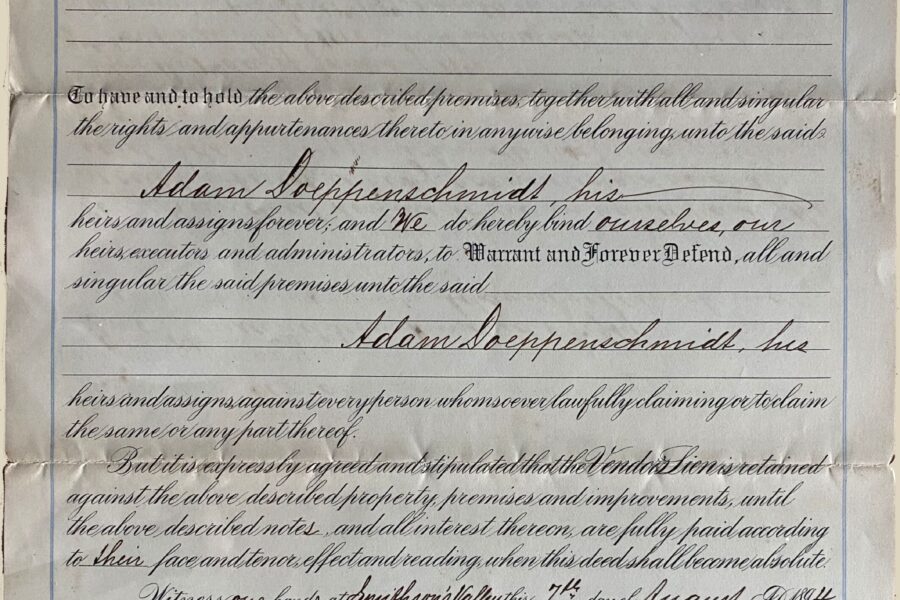 To have and to hold the above described premises, together with all and singular
the rights and appurtenances thereto in anywise belonging, unto the said
Adam Doeppenschmidt, his
heirs and assigns forever; and We do hereby bind ourselves, our
heirs, executors and administrators, to Warrant and Forever Defend, all and
singular the said premises unto the said
Adam Doeppenschmidt, his
heirs and assigns, against every person whomsoever lawfully claiming or to claim
the same or any part thereof.
But it is expressly agreed and stipulated that the Vendor's Lien is retained
against the above described property, premises and improvements, until
the above described notes, and all interest thereon, are fully paid according
to their face and tenor, effect and reading, when this deed shall become absolute.
Witness our hands at Smithson's Valley this 7th day of August A.D. 1894